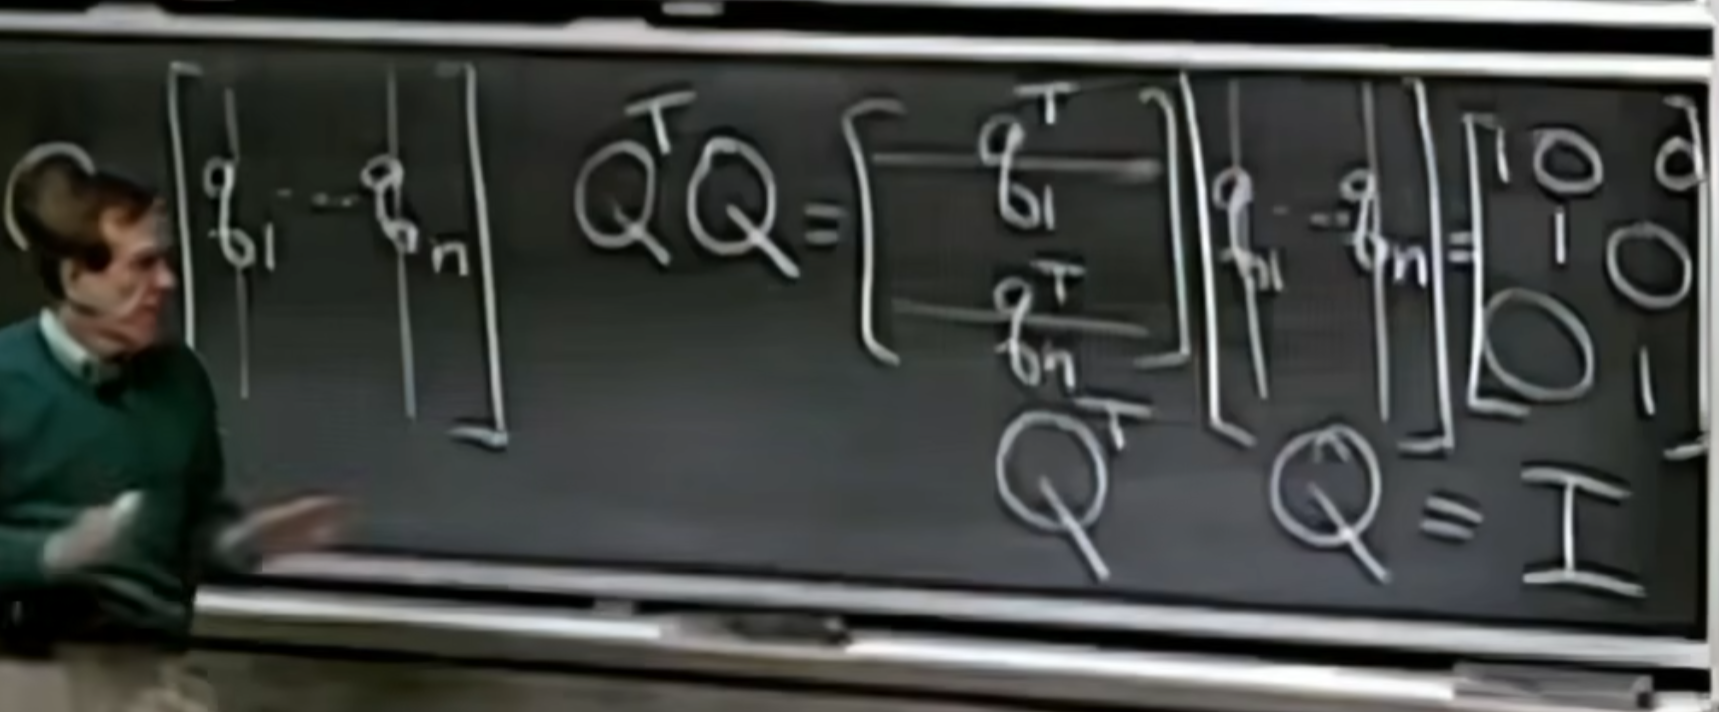 Q [q₁ -- qₙ] QᵀQ = [q₁ᵀ qₙᵀ] [q₁ -- qₙ] = [1 0 0 1 0 0 1]
Qᵀ Q = I